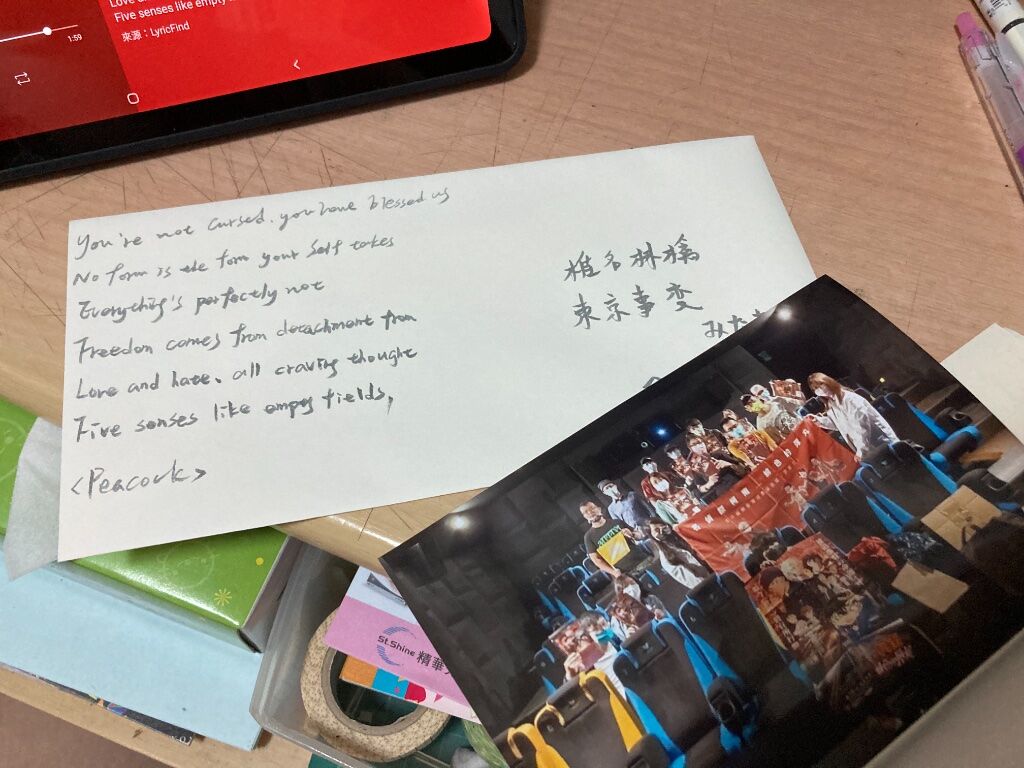 Five senses like empty
來源：LyricFind
1:59
You're not cursed. you have blessed us
No form is the form your self takes
Everything's perfectly not
Freedom comes from detachment from
Love and hate、all craving thought
Five senses like empty fields,
<Peacock>
椎名林檎
東京事変
みた
St.Shine 精華